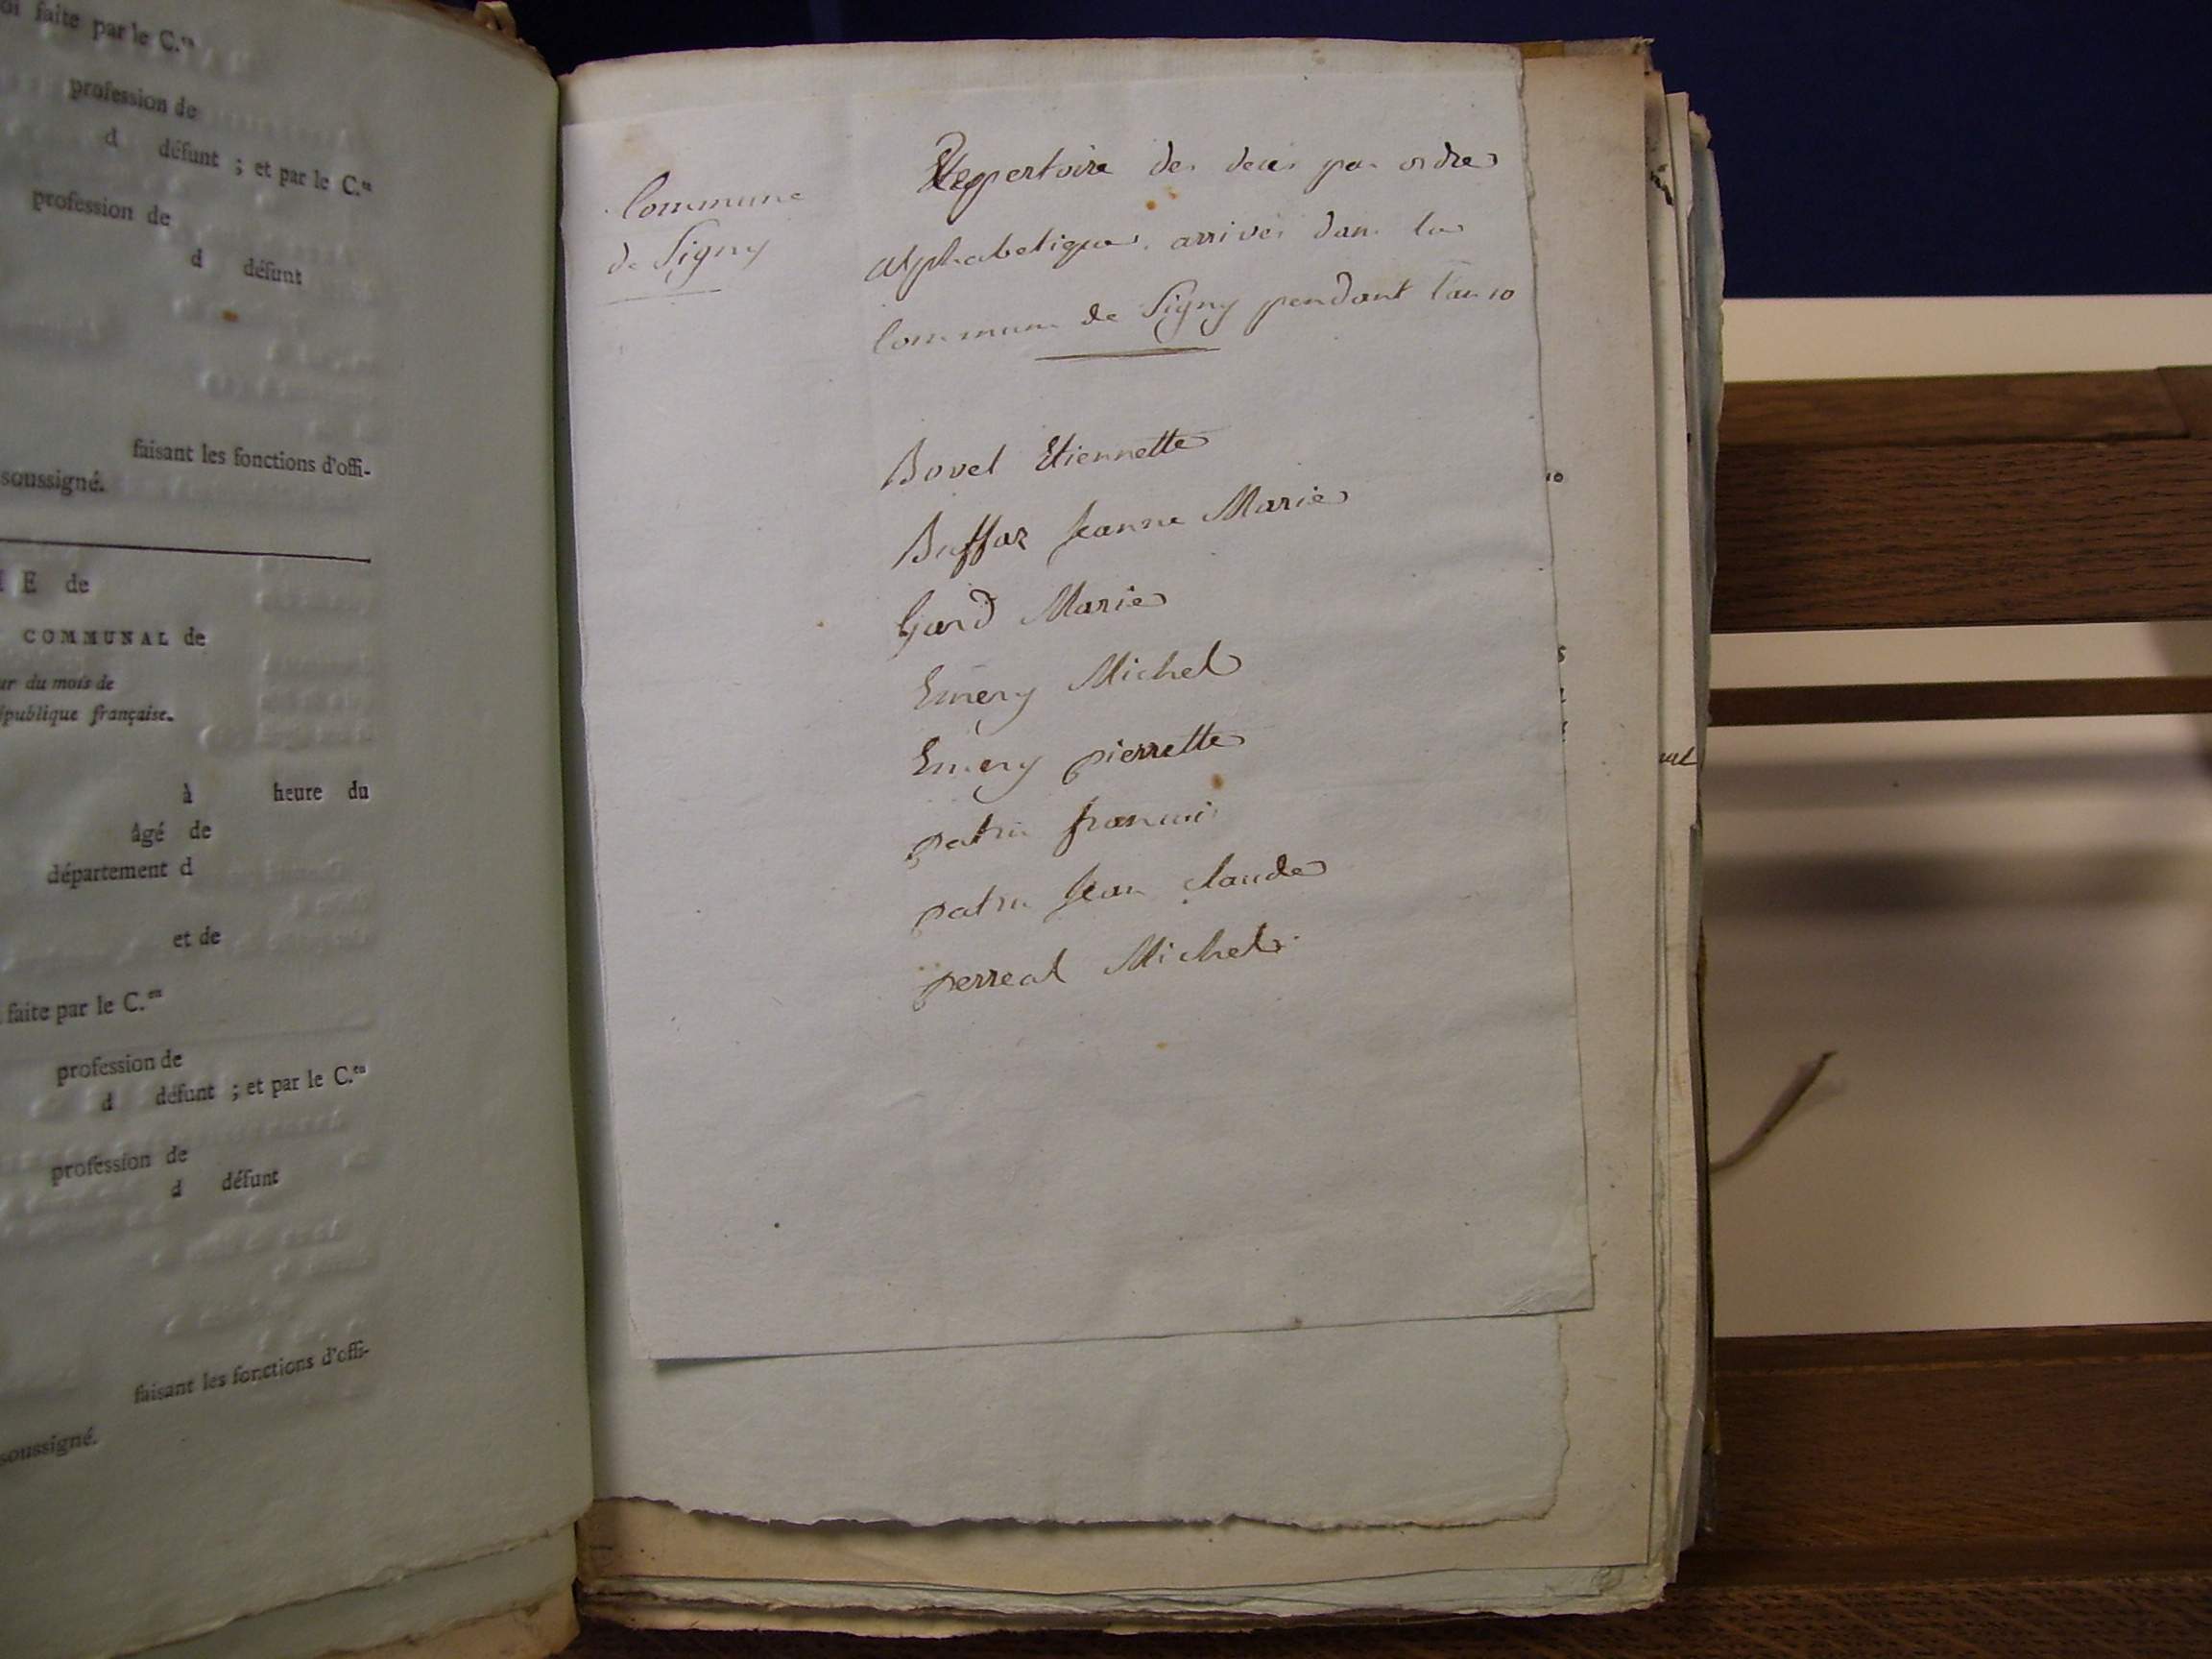 faite par le C.en
profession de
d défunt ; et par le C.en
profession de
d défunt
faisant les fonctions d'offi-
soussigné.
E de
COMMUNAL de
du mois de
française.
à heure du
âgé de
département d
et de
faite par le C.en
profession de
d défunt ; et par le C.en
profession de
d défunt
faisant les fonctions d'offi-
soussigné.
Commune
de Signy
Repertoire des deces par ordre
alphabetique arrivés dans la
Commune de Signy pendant l'an 10
Bovel Etiennette
Buffaz Jeanne Marie
Gard Marie
Emery Michel
Emery pierrette
patru francois
patru Jean claude
perreal Michel